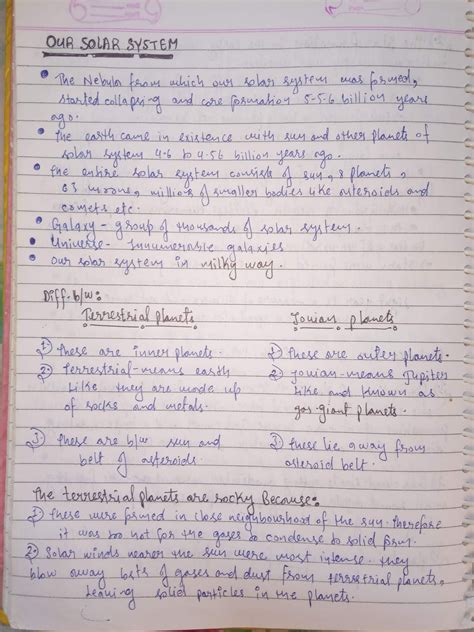 OUR SOLAR SYSTEM
• The Nebula from which our solar system was formed,
started collapsing and core formation 5-5.6 billion years
ago.
• The earth came in existence with sun and other planets of
solar system 4.6 to 4.56 billion years ago.
• The entire solar system consists of sun, 8 planets,
63 moons, millions of smaller bodies like asteroids and
comets etc.
• Galaxy - group of thousands of solar system.
• Universe - Innumerable galaxies
• Our solar system in milky way.
Diff. b/w:
Terrestrial planets Jovian planets
1) These are inner planets. 1) These are outer planets.
2) Terrestrial-means earth 2) Jovian-means Jupiter
like they are made up like and known as
of rocks and metals. gas-giant planets.
3) These are b/w sun and 3) These lie away from
belt of asteroids. asteroid belt.
The terrestrial planets are rocky Because:
1) These were formed in close neighbourhood of the sun. Therefore
it was too hot for the gases to condense to solid form.
2) Solar winds nearer the sun were most intense. They
blow away lots of gases and dust from terrestrial planets,
leaving solid particles in the planets.